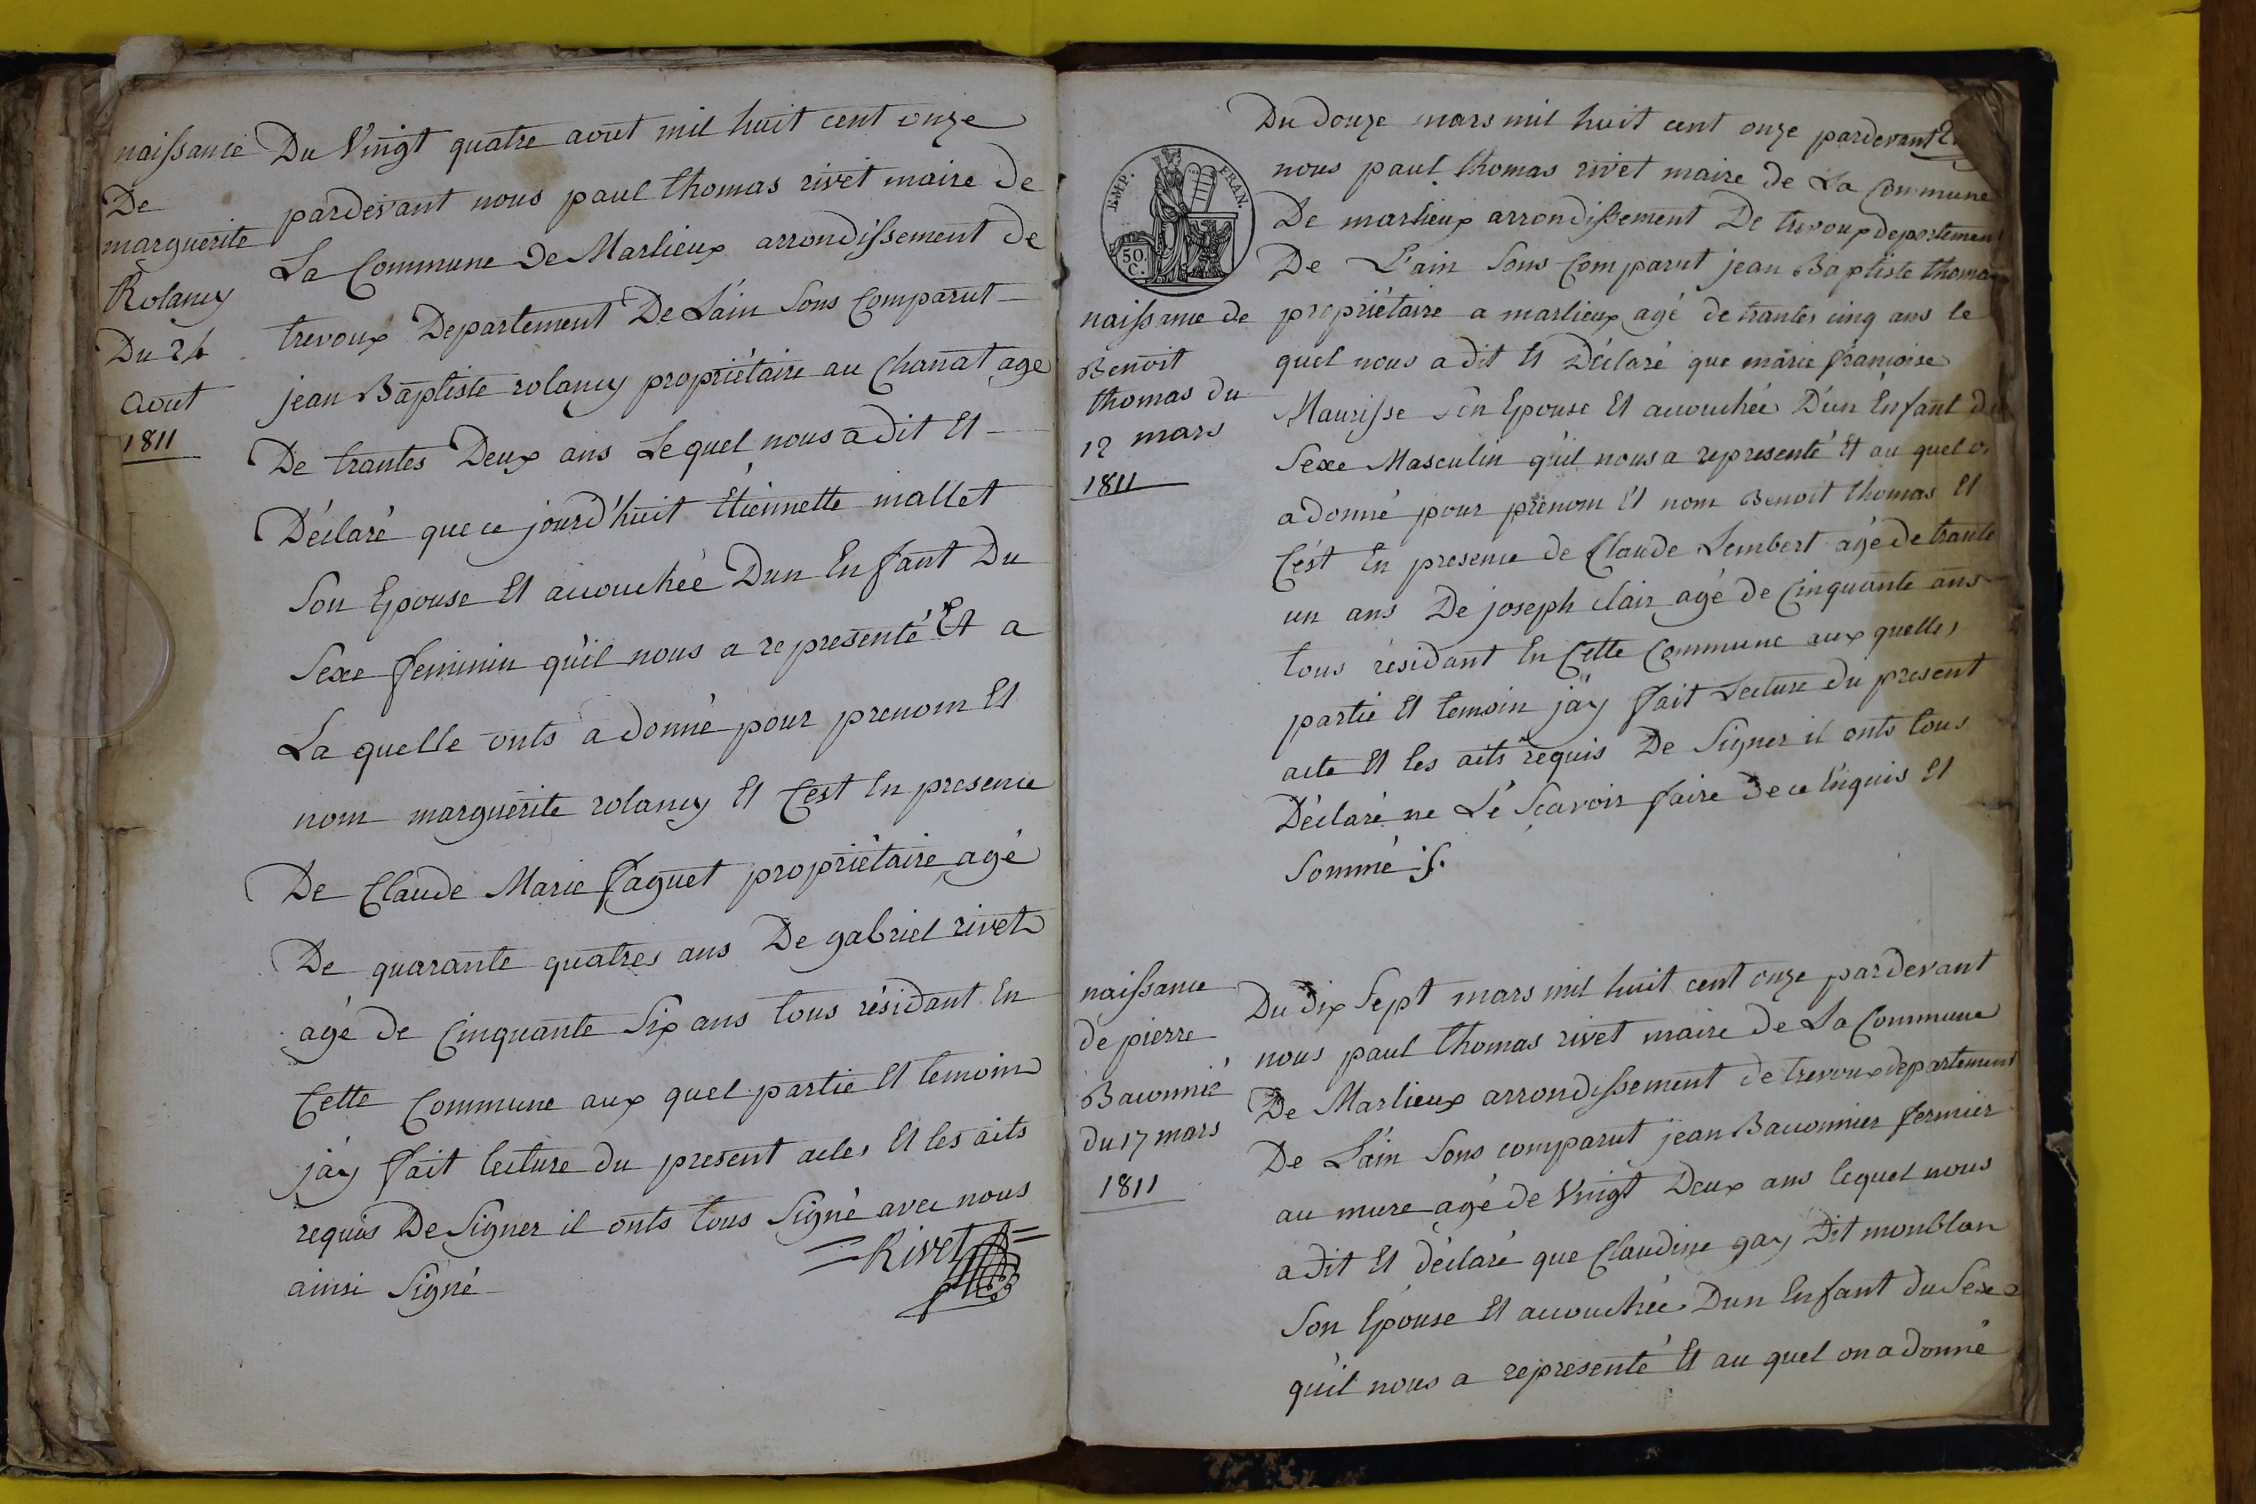 naissance
De
marguerite
Rolancy
Du 24
Aout
1811
Du Vingt quatre aout mil huit cent onze
pardevant nous paul thomas rivet maire de
La Commune de Marlieux arrondissement de
trevoux Departement De L'ain Sons Comparut
jean Baptiste rolancy propriétaire au Chanat age
De trantes Deux ans Le quel nous a dit Et
Déclaré que ce jourd'huit Etiennette mallet
Son Epouse Et accouchée Dun Enfant Du
Sexe feminin qu'il nous a representé Et a
La quelle onts a donné pour prenom Et
nom marguerite rolancy Et C'est En presence
De Claude Marie faguet propriétaire agé
De quarante quatres ans De gabriel rivet
agé de Cinquante Six ans tous résidant En
Cette Commune aux quel partie Et temoin
j'ay fait lecture du present acte, Et les aits
requis De Signer il onts tous Signé avec nous
ainsi Signé
Rivet
EMP. FRAN.
50.
C.
naissance de
Benoit
thomas du
12 mars
1811
Du douze mars mil huit cent onze pardevant
nous paul thomas rivet maire de La Commune
De marlieux arrondissement De trevoux departement
De L'ain Sons Comparut jean Baptiste thomas
propriétaire a marlieux agé de trantes cinq ans le
quel nous a dit Et Déclaré que marie françoise
Maurisse Son Epouse Et accouchée D'un Enfant du
Sexe Masculin qu'il nous a representé Et au quel
a donné pour prenom Et nom Benoit thomas Et
C'est En presence de Claude Lembert agé de trante
un ans De joseph clair agé de Cinquante ans
tous résidant En Cette Commune aux quelles
partie Et temoin j'ay fait Lecture du present
acte Et les aits requis De Signer il onts tous
Déclaré ne Lé Sçavoir faire de ce Enquis Et
Sommé
naissance
de pierre
Baconnié
du 17 mars
1811
Du dix Sept mars mil huit cent onze pardevant
nous paul thomas rivet maire de La Commune
De Marlieux arrondissement de trevoux departement
De L'ain Sons comparut jean Baconnier fermier
au mure agé de Vingt Deux ans lequel nous
a dit Et déclaré que Claudine gay Dit monblan
Son Epouse Et accouchée Dun Enfant du Sexe
qu'il nous a representé Et au quel on a donné